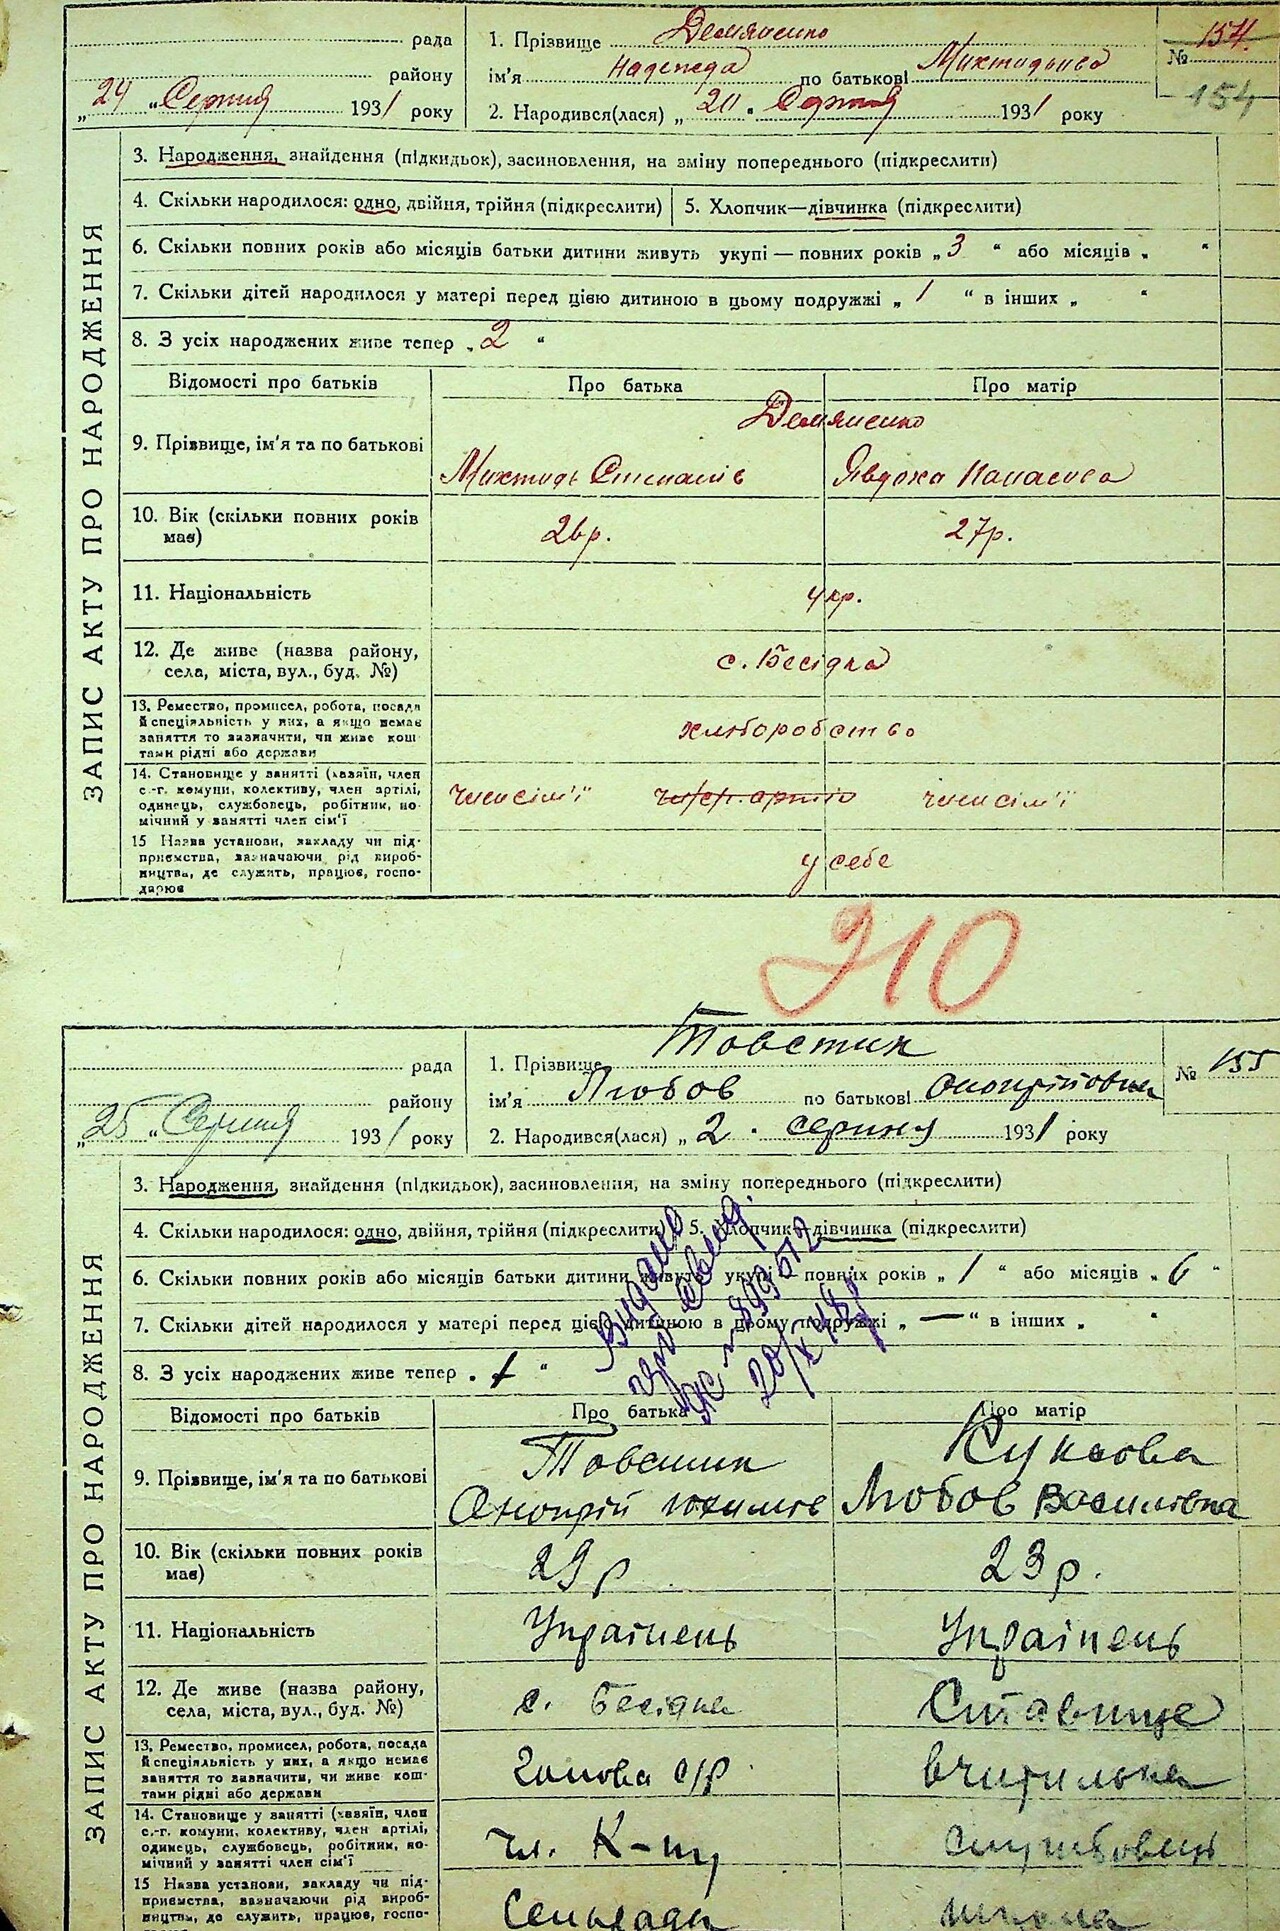 рада
району
„24 " Серпня 1931 року
1. Прізвище Демяненко
ім'я Надежда по батькові
2. Народився(лася) „20 " Серпня 1931 року
№ 154.
154
ЗАПИС АКТУ ПРО НАРОДЖЕННЯ
3. Народження, знайдення (підкидьок), засиновлення, на зміну попереднього (підкреслити)
4. Скільки народилося: одно, двійня, трійня (підкреслити) 5. Хлопчик—дівчинка (підкреслити)
6. Скільки повних років або місяців батьки дитини живуть укупі — повних років „ 3 " або місяців „ "
7. Скільки дітей народилося у матері перед цією дитиною в цьому подружжі „ 1 " в інших „ "
8. З усіх народжених живе тепер „ 2 "
Відомості про батьків Про батька Про матір
Демяненко
9. Прізвище, ім'я та по батькові
Явдоха Панасова
10. Вік (скільки повних років
має)
26р. 27р.
11. Національність укр.
12. Де живе (назва району,
села, міста, вул., буд. №)
с. Бесідка
13. Ремество, промисел, робота, посада
й спеціяльність у них, а якщо немає
заняття то зазначити, чи живе кош-
тами рідні або держави
хліборобство
14. Становище у занятті (хазяїн, член
с.-г. комуни, колективу, член артілі,
одинець, службовець, робітник, по-
мічний у занятті член сім'ї
член сім'ї член сім'ї
15 Назва установи, закладу чи під-
приємства, зазначаючи рід вироб-
ництва, де служить, працює, госпо-
дарює
у себе
910
рада
району
„25 " Серпня 1931 року
1. Прізвище Товстик
ім'я Любов по батькові Онопрійовна
2. Народився(лася) „ 2 " серпня 1931 року
№ 155
ЗАПИС АКТУ ПРО НАРОДЖЕННЯ
3. Народження, знайдення (підкидьок), засиновлення, на зміну попереднього (підкреслити)
4. Скільки народилося: одно, двійня, трійня (підкреслити) 5. Хлопчик—дівчинка (підкреслити)
6. Скільки повних років або місяців батьки дитини живуть укупі — повних років „ 1 " або місяців „ 6 "
7. Скільки дітей народилося у матері перед цією дитиною в цьому подружжі „ — " в інших „ "
8. З усіх народжених живе тепер „ 1 "
Видано
свид.
№ 899512
20/X 48р
Відомості про батьків Про батька Про матір
9. Прізвище, ім'я та по батькові
Товстик
Онопрій Юхимів
Любов Василівна
10. Вік (скільки повних років
має)
29р 23р.
11. Національність Українець Українець
12. Де живе (назва району,
села, міста, вул., буд. №)
с. Бесідка Ставище
13. Ремество, промисел, робота, посада
й спеціяльність у них, а якщо немає
заняття то зазначити, чи живе кош-
тами рідні або держави
Голова с/р вчителька
14. Становище у занятті (хазяїн, член
с.-г. комуни, колективу, член артілі,
одинець, службовець, робітник, по-
мічний у занятті член сім'ї
чл. К-ту службовець
15 Назва установи, закладу чи під-
приємства, зазначаючи рід вироб-
ництва, де служить, працює, госпо-
Сельради школа